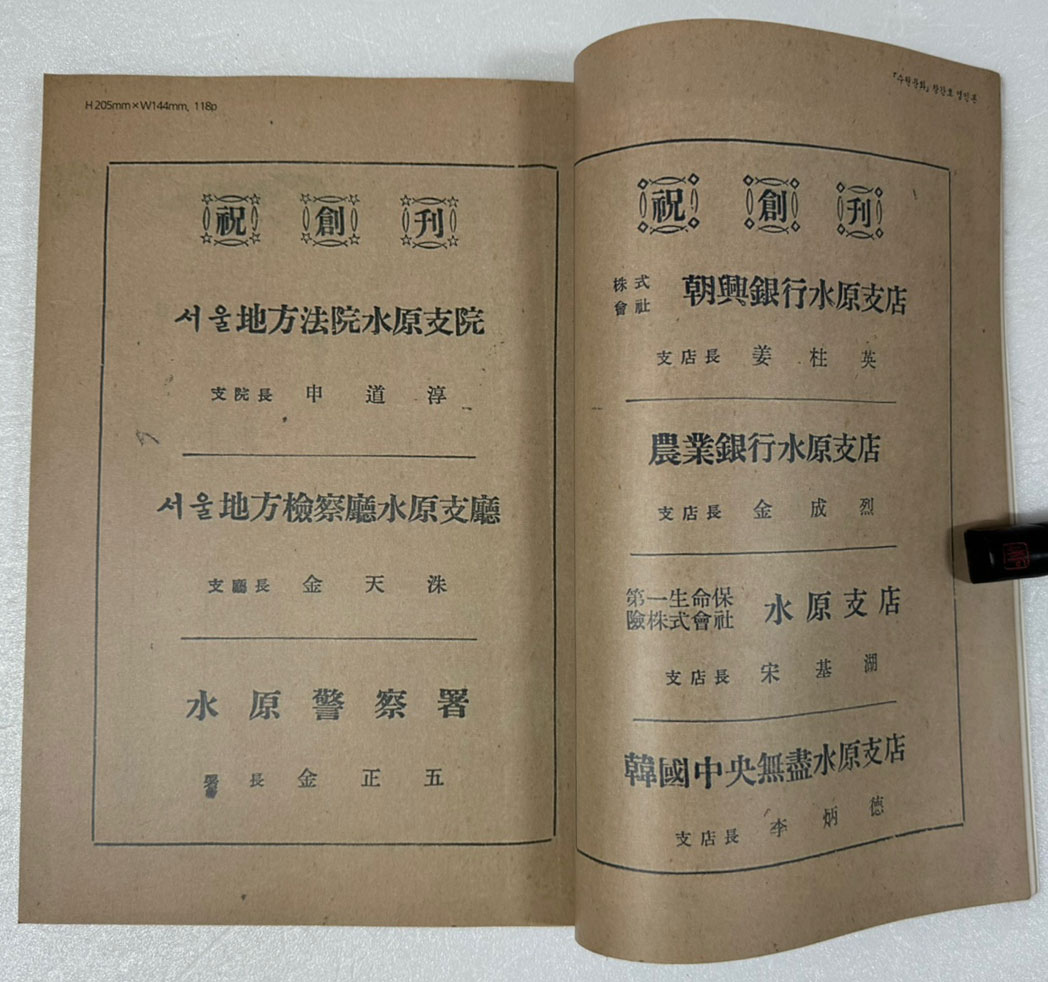 H 205mm×W144mm, 118p
祝 創 刊
서울地方法院水原支院
支院長 申 道 淳
서울地方檢察廳水原支廳
支廳長 金 天 洙
水原警察署
署長 金 正 五
『수원문화』 창간호 영인본
祝 創 刊
株式
會社 朝興銀行水原支店
支店長 姜 柱 英
農業銀行水原支店
支店長 金 成 烈
第一生命保
險株式會社 水原支店
支店長 宋 基 湖
韓國中央無盡水原支店
支店長 李 炳 德